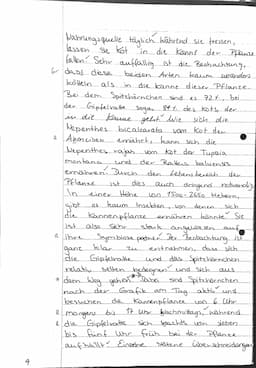 Nahrungsquelle täglich während sie fressen,
lassen sie Kot in die Kanne der Pflanze
fallen. Sehr auffällig ist die Beobachtung,
dass diese beiden Arten kaum woanders
als in die Kanne dieser Pflanze.
Bei dem Spitzhörnchen sind es 72%, bei
der Gipfelratte sogar 84% des Kots der
in die Kanne geht. Wie sich die
Nepenthes bicalcarata vom Kot der
Ameisen ernährt, kann sich die
Nepenthes rajah vom Kot der Tupaia
montana und der Rattus baluensis
ernähren. Durch den Lebensbereich der
Pflanze ist dies auch dringend notwendig.
In einer Höhe von 1500-2650 Metern,
gibt es kaum Insekten, von denen sich
die Kannenpflanze ernähren könnte. Sie
ist also sehr stark angewiesen auf
ihre Symbiosepartner. Der Beobachtung ist
ganz klar zu entnehmen, dass sich
die Gipfelratte und das Spitzhörnchen
relativ selten begegnen und sich aus
dem Weg gehen. Das Spitzhörnchen
nach der Grafik am Tag aktiv und
besuchen die Kannenpflanze von 6 Uhr
morgens bis 17 Uhr nachmittags, während
die Gipfelratte sich nachts von sieben
bis fünf Uhr früh bei der Pflanze
aufhält. Einzelne seltene Überschneidungen
4